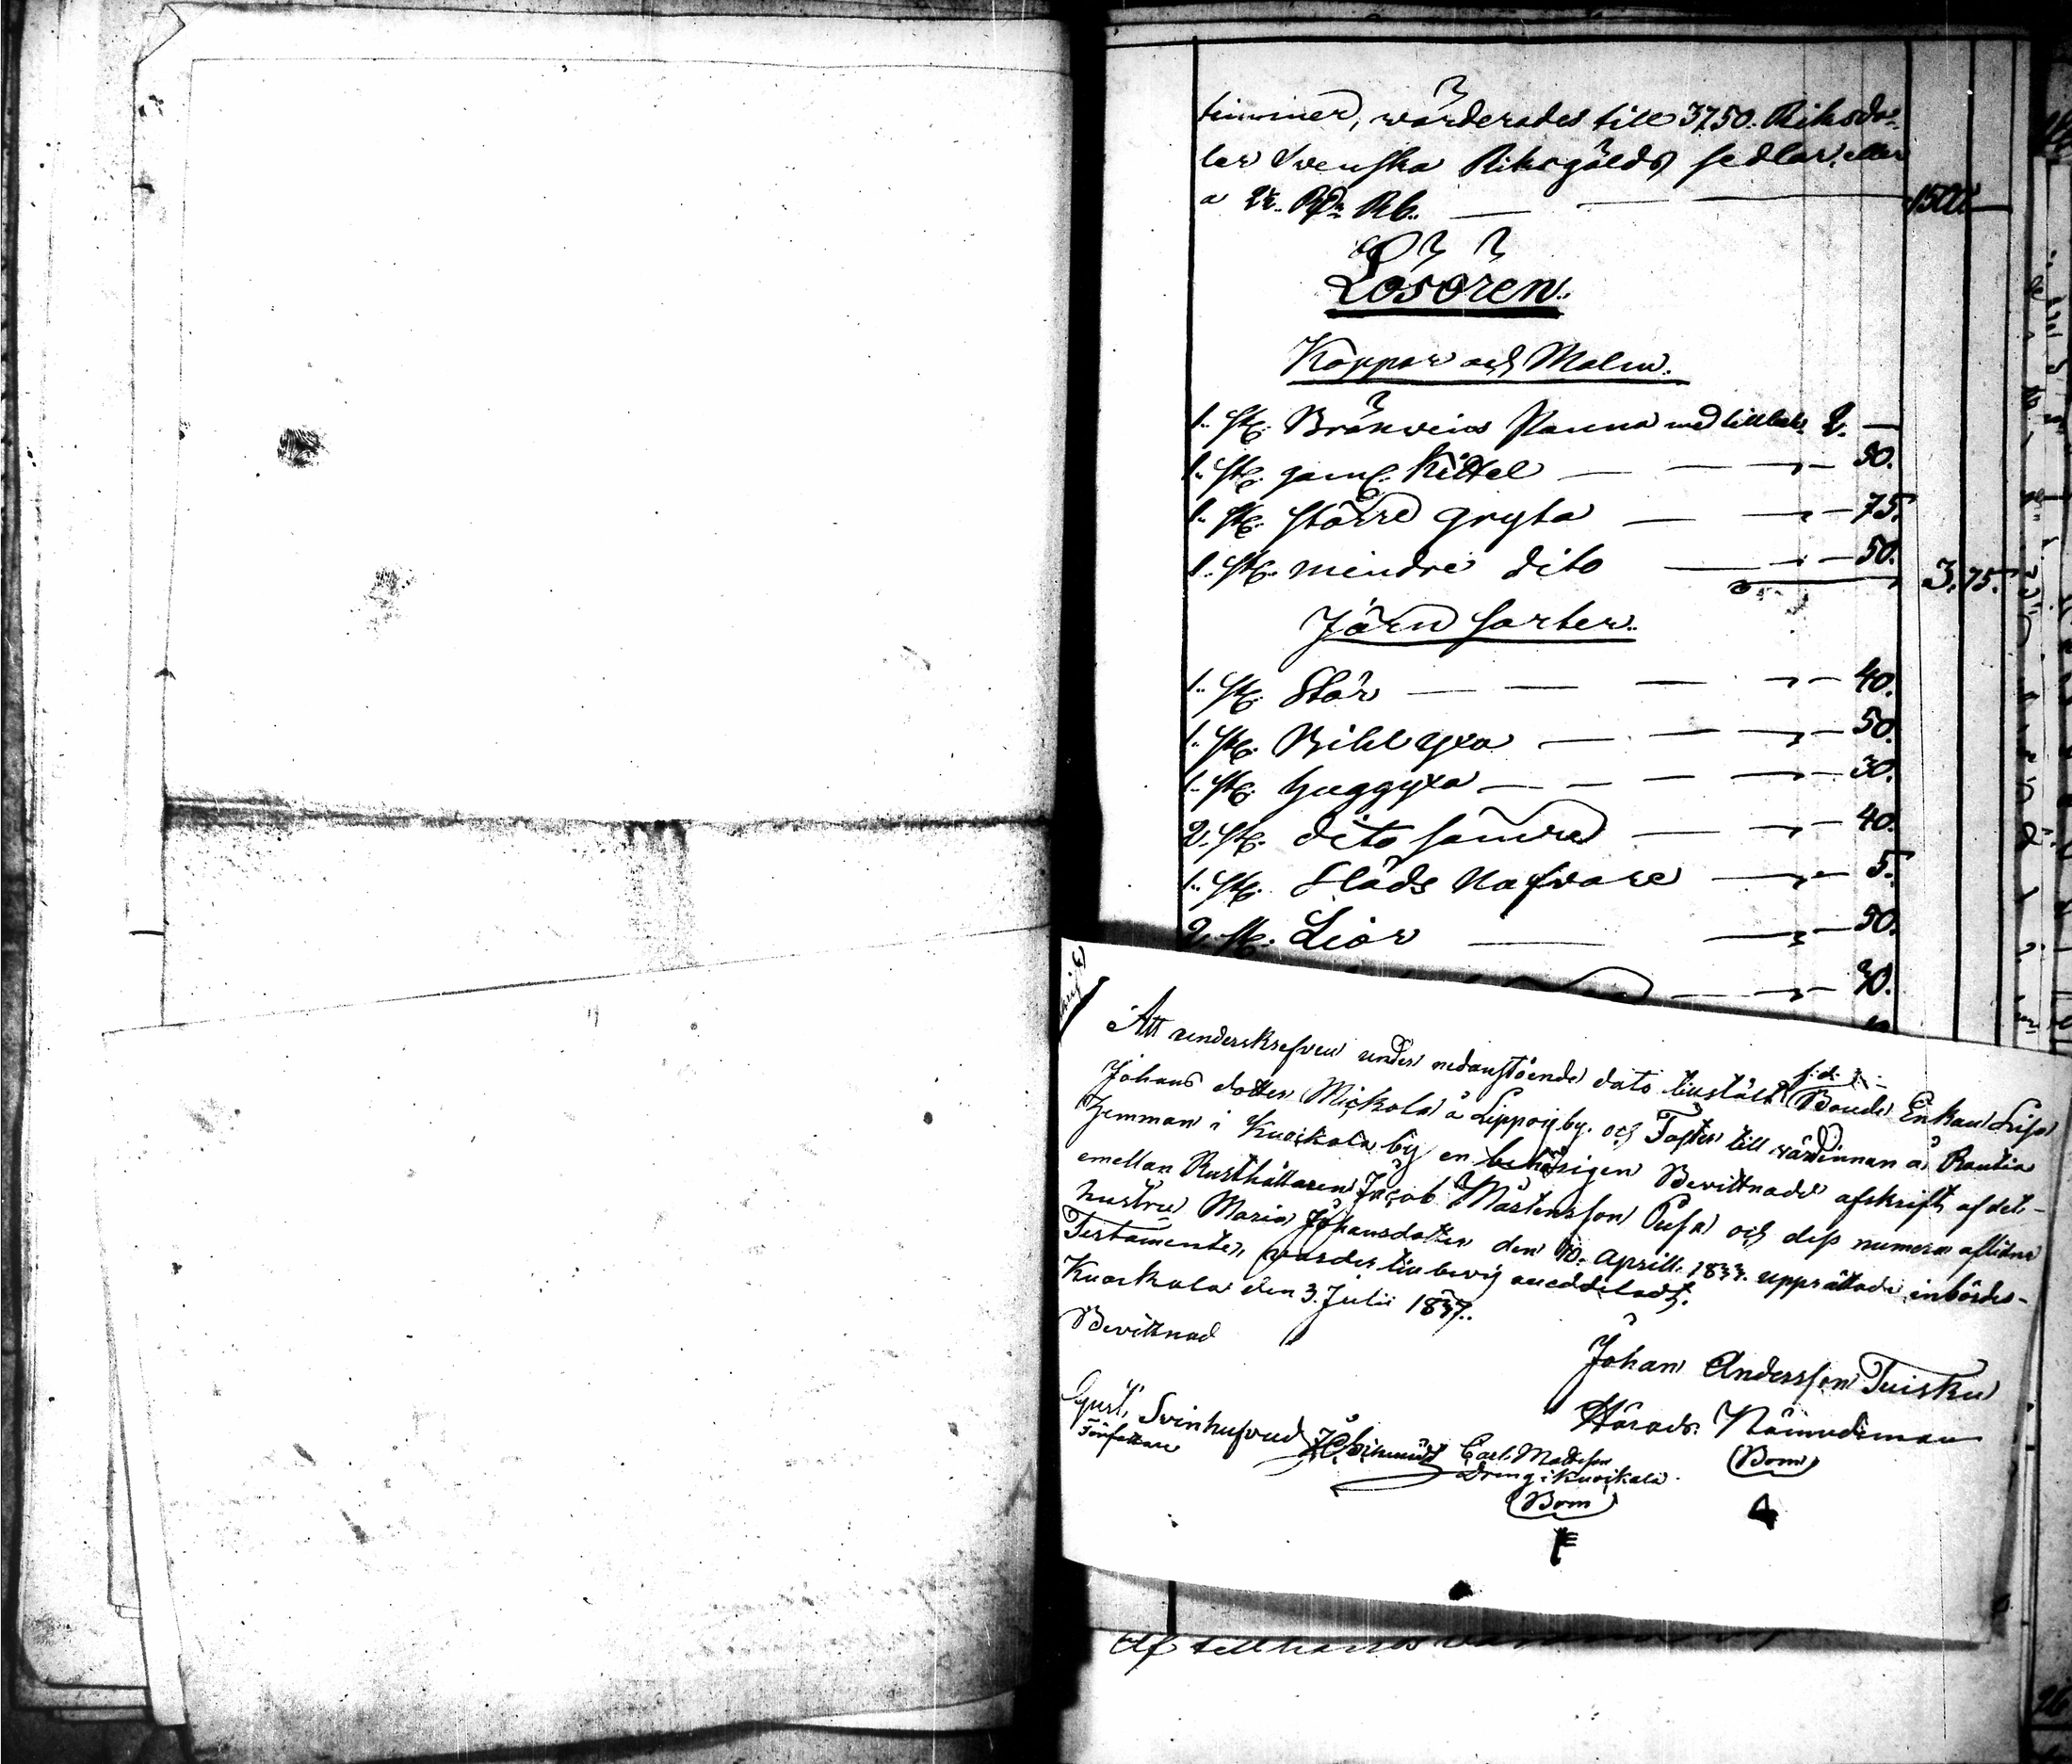 timmer, värderades till 3750. Riksda-
ler Svenska Riksgälds sedlar, eller
a 2½. Rd. Rb. — 1500
Lösören.
Koppar och Malm.
1. st. Brännvins Panna med tillbeh. 2. —
1. st. gaml. Kittel — 50.
1. st. större gryta — 75.
1. st. mindre dito — 50. 3. 75.
Järn sorter.
1. st. Stör — 40.
1. st. Bihl yxa — 50.
1. st. huggyxa — 30.
2. st. dito sämre — 40.
1. st. Släds Nafvare — 5.
2. st. Lior — 50.
30.
Att underskrefven under nedanstående dato tillstält f.d. Bonde Enkan Lisa
Johans dotter Mickola å Lippois by. och Faster till värdinnan å Rautia
hemman i Kuoskala by en behörigen Bevittnade afskrift af det
emellan Rusthållaren Jacob Mårtensson Pusa och dess numera aflidne
hustru Maria Johansdotter den 10. Aprill. 1833. upprättade inbördes-
Testamente, varder till bevis meddeladt.
Kuoskala den 3. Julii 1837.
Bevittnad
Johan Andersson Tuisku
Härads Nämndeman
(Bom)
Gust. Svinhufvud
Författare
Carl Mattsson
Dreng i Kuoskala
(Bom)
Af